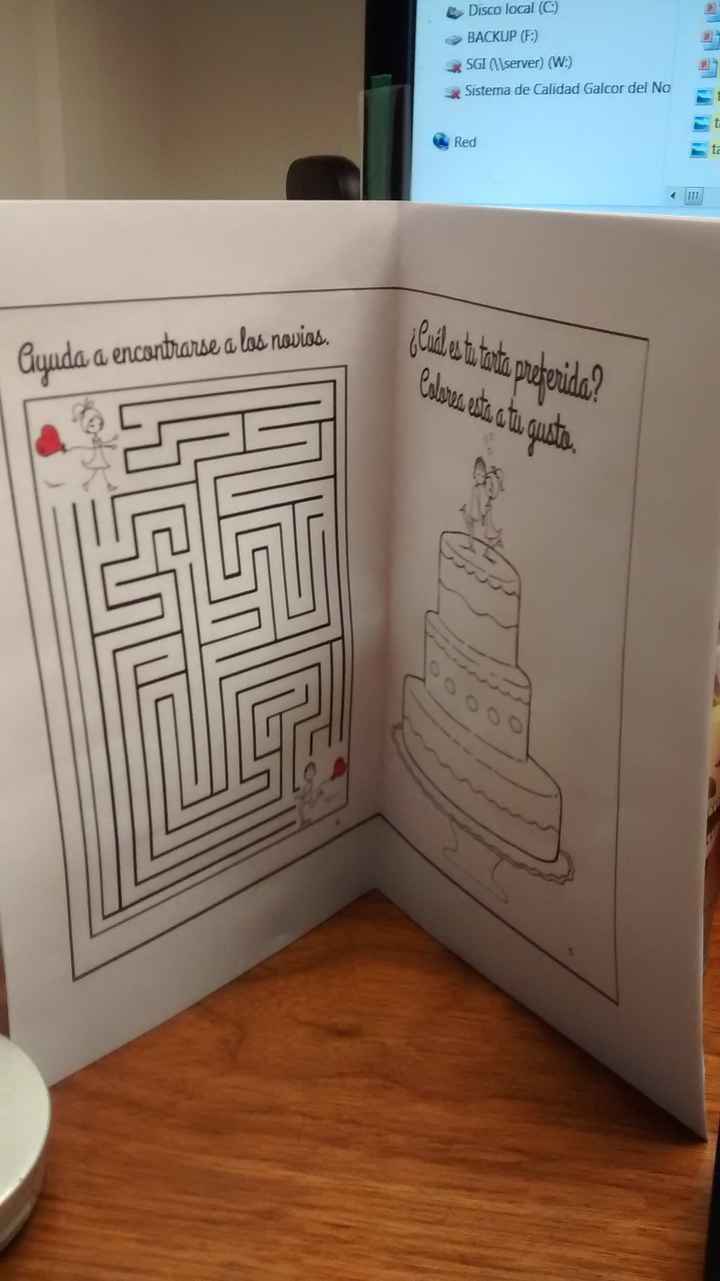 Disco local (C:)
BACKUP (F:)
SGI (\\server) (W:)
Sistema de Calidad Galcor del No
Red
Ayuda a encontrarse a los novios.
¿Cuál es tu tarta preferida?
Colorea esta a tu gusto.
5